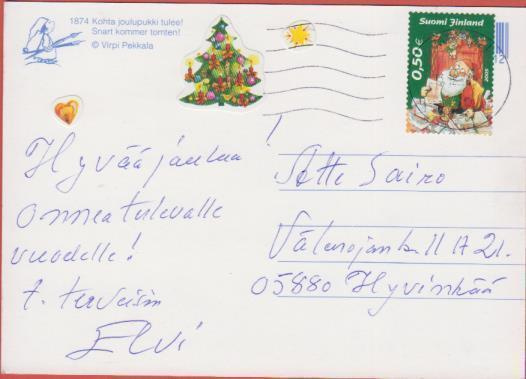 1874 Kohta joulupukki tulee!
Snart kommer tomten!
© Virpi Pekkala
Suomi Finland
0,50€
2005
Hyvää joulua!
Onnea tulevalle
vuodelle!
t. terveisin
Elvi
Atte Sairo
11 A 21.
05880 Hyvinkää